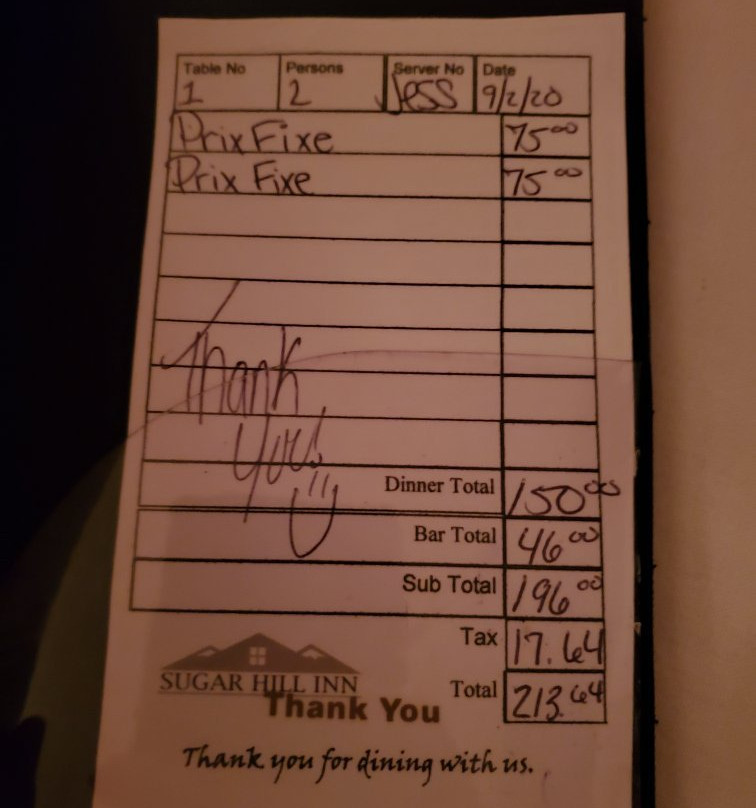 Table No Persons Server No Date
1 2 Jess 9/2/20
Prix Fixe 75 00
Prix Fixe 75 00
Thank
You!
Dinner Total 150 00
Bar Total 46 00
Sub Total 196 00
Tax 17.64
SUGAR HILL INN
Total 213.64
Thank You
Thank you for dining with us.